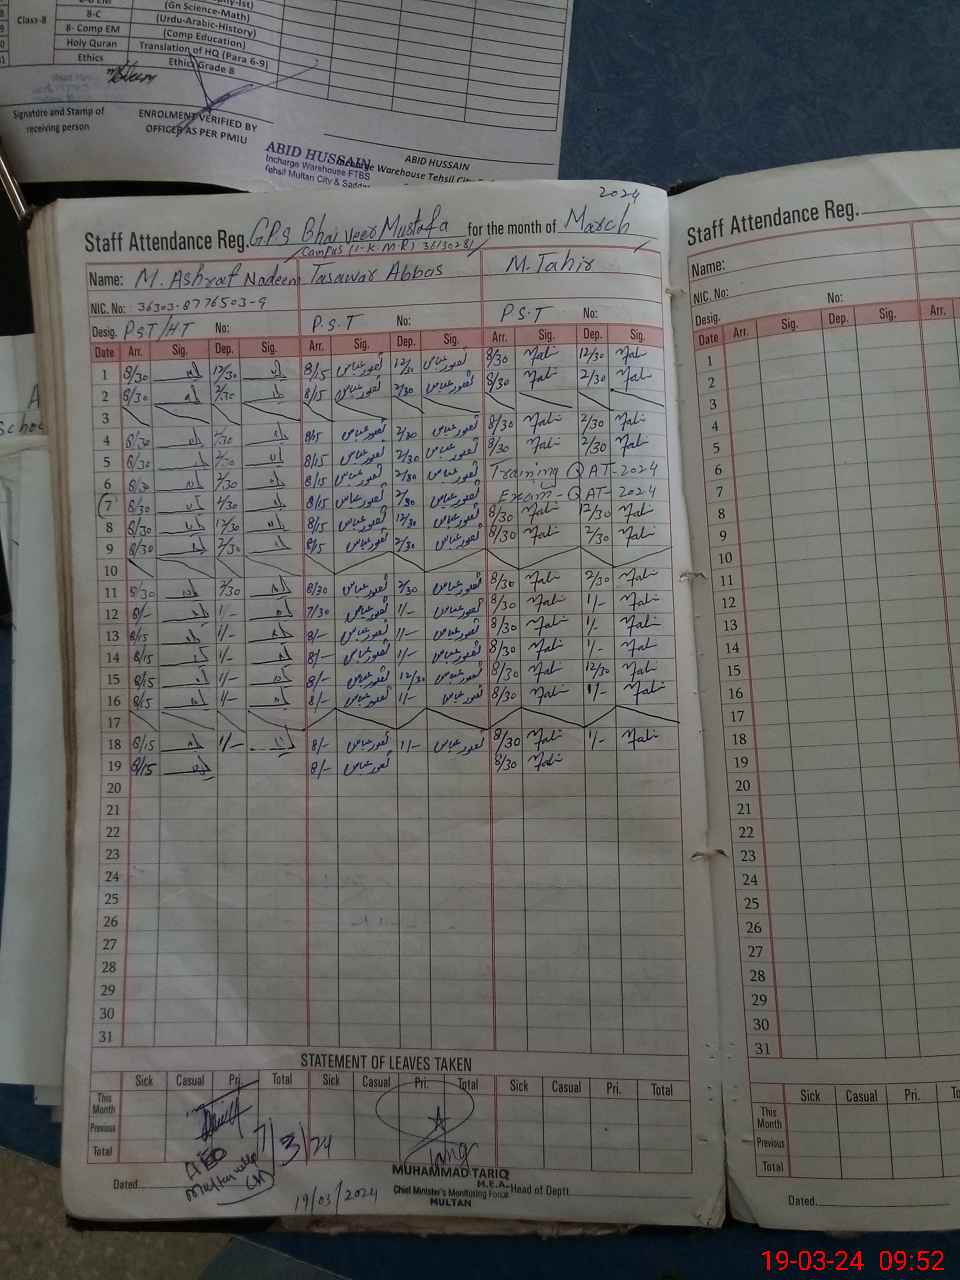 Class-8
8-C
8- Comp EM
Holy Quran
Ethics
(Gn Science-Math)
(Urdu-Arabic-History)
(Comp Education)
Translation of HQ (Para 6-9)
Ethics Grade 8
Signature and Stamp of
receiving person
ENROLMENT VERIFIED BY
OFFICER AS PER PMIU
ABID HUSSAIN
Incharge Warehouse FTBS
Tehsil Multan City & Saddar
ABID HUSSAIN
Incharge Warehouse Tehsil City
2024
Staff Attendance Reg. G.P.S Mustafa for the month of March
Campus
Name: M. Ashraf Nadeem Tasawar Abbas M. Tahir
NIC. No: 36303-8776503-9
Desig. PST/HT No: P.S.T No: P.S.T No:
Date Arr. Sig. Dep. Sig. Arr. Sig. Dep. Sig. Arr. Sig. Dep. Sig.
1 8/30 12/30 8/15 تصور عباس 12/30 تصور عباس 8/30 12/30
2 8/30 2/30 8/15 تصور عباس 2/30 تصور عباس 8/30 2/30
3
4 8/30 2/30 8/15 تصور عباس 2/30 تصور عباس 8/30 2/30
5 8/30 2/30 8/15 تصور عباس 2/30 تصور عباس 8/30 2/30
6 8/30 2/30 8/15 تصور عباس 2/30 تصور عباس Training QAT-2024
7 8/30 2/30 8/15 تصور عباس 2/30 تصور عباس Exam-QAT-2024
8 8/30 12/30 8/15 تصور عباس 12/30 تصور عباس 8/30 12/30
9 8/30 2/30 8/15 تصور عباس 2/30 تصور عباس 8/30 2/30
10
11 8/30 2/30 8/30 تصور عباس 2/30 تصور عباس 8/30 2/30
12 8/- 1/- 7/30 تصور عباس 1/- تصور عباس 8/30 1/-
13 8/15 1/- 8/- تصور عباس 1/- تصور عباس 8/30 1/-
14 8/15 1/- 8/- تصور عباس 1/- تصور عباس 8/30 1/-
15 8/15 1/- 8/- تصور عباس 12/30 تصور عباس 8/30 12/30
16 8/15 1/- 8/- تصور عباس 1/- تصور عباس 8/30 1/-
17
18 8/15 1/- 8/- تصور عباس 1/- تصور عباس 8/30 1/-
19 8/15 8/- تصور عباس 8/30
20
21
22
23
24
25
26
27
28
29
30
31
STATEMENT OF LEAVES TAKEN
Sick Casual Pri. Total Sick Casual Pri. Total Sick Casual Pri. Total
This Month
Previous
Total
AEO
7/3/24
Dated
19/03/2024
MUHAMMAD TARIQ
M.E.A.
Chief Minister's Monitoring Force
MULTAN
Head of Deptt
Staff Attendance Reg.
Name:
NIC. No: No:
Desig.
Date Arr. Sig. Dep. Sig. Arr.
1
2
3
4
5
6
7
8
9
10
11
12
13
14
15
16
17
18
19
20
21
22
23
24
25
26
27
28
29
30
31
Sick Casual Pri.
This Month
Previous
Total
Dated
19-03-24 09:52